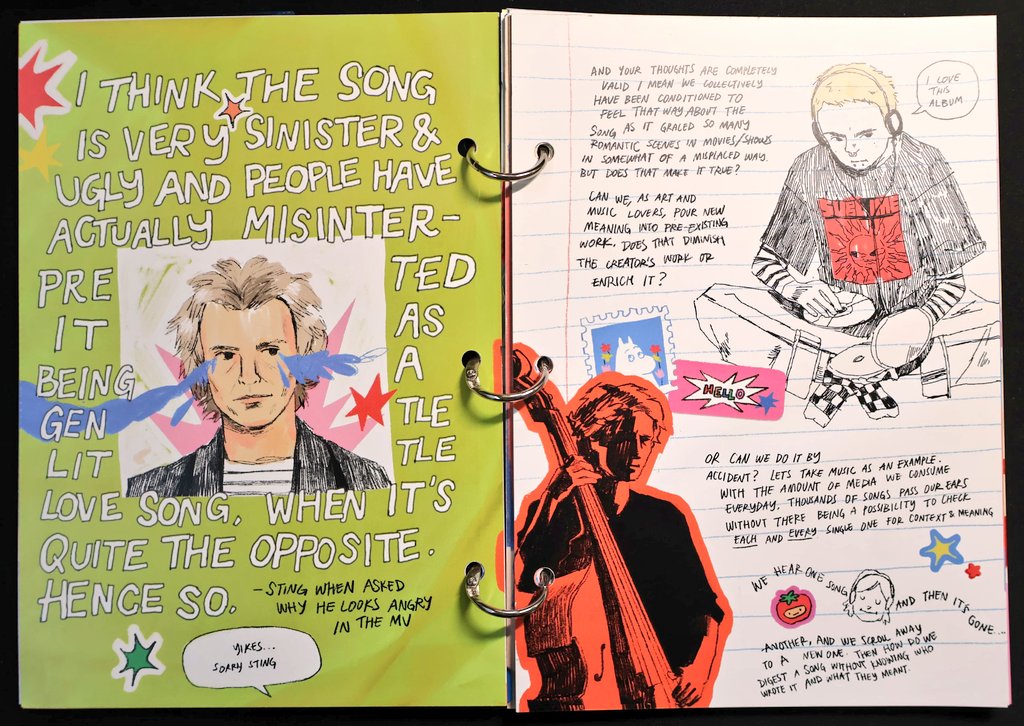 I THINK THE SONG
IS VERY SINISTER &
UGLY AND PEOPLE HAVE
ACTUALLY MISINTER-
PRE TED
IT AS
BEING A
GEN TLE
LIT TLE
LOVE SONG, WHEN IT'S
QUITE THE OPPOSITE.
HENCE SO.
- STING WHEN ASKED
WHY HE LOOKS ANGRY
IN THE MV
YIKES...
SORRY STING
AND YOUR THOUGHTS ARE COMPLETELY
VALID I MEAN WE COLLECTIVELY
HAVE BEEN CONDITIONED TO
FEEL THAT WAY ABOUT THE
SONG AS IT GRALED SO MANY
ROMANTIC SCENES IN MOVIES/SHOWS
IN SOMEWHAT OF A MISPLACED WAY.
BUT DOES THAT MAKE IT TRUE?
I LOVE
THIS
ALBUM
SUBLIME
CAN WE, AS ART AND
MUSIC LOVERS, POUR NEW
MEANING INTO PRE-EXISTING
WORK, DOES THAT DIMINISH
THE CREATOR'S WORK OR
ENRICH IT?
HELLO
OR CAN WE DO IT BY
ACCIDENT? LETS TAKE MUSIC AS AN EXAMPLE.
WITH THE AMOUNT OF MEDIA WE CONSUME
EVERYDAY, THOUSANDS OF SONGS PASS OUR EARS
WITHOUT THERE BEING A POSSIBILITY TO CHECK
EACH AND EVERY SINGLE ONE FOR CONTEXT & MEANING
WE HEAR ONE SONG
AND THEN IT'S GONE...
ANOTHER, AND WE SCROLL AWAY
TO A NEW ONE. THEN HOW DO WE
DIGEST A SONG WITHOUT KNOWING WHO
WROTE IT AND WHAT THEY MEANT.